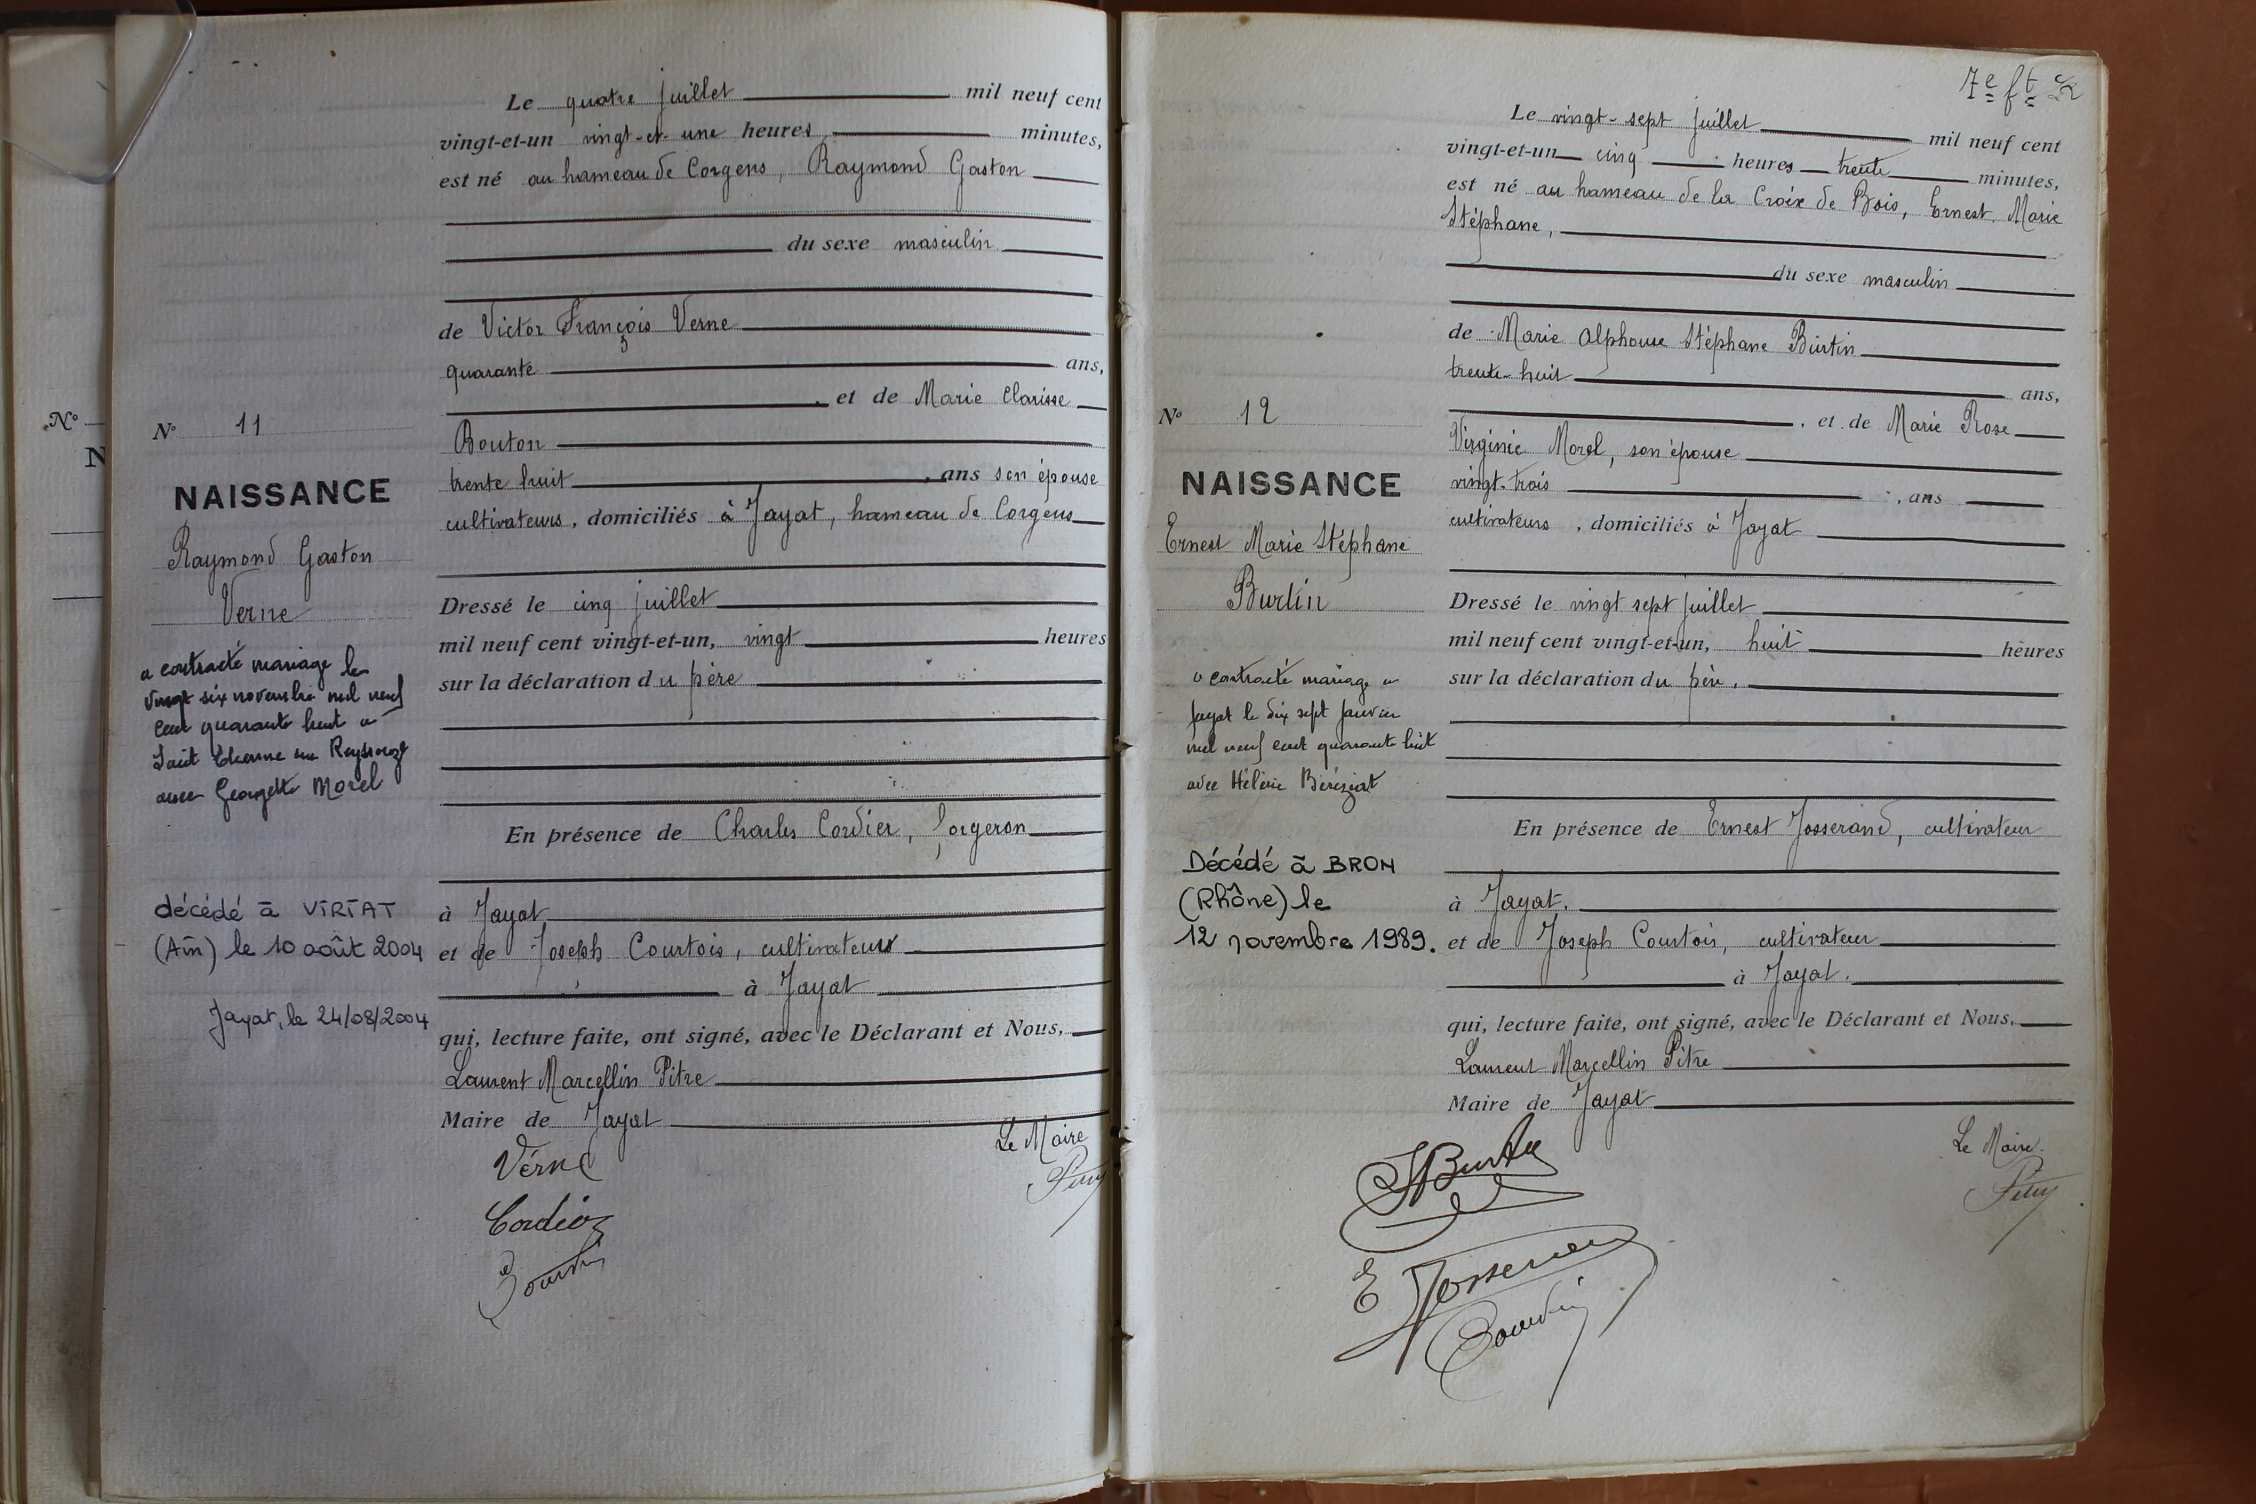 Le quatre juillet mil neuf cent
vingt-et-un vingt-et-une heures minutes,
est né au hameau de Corgens, Raymond Gaston
du sexe masculin
de Victor François Verne
quarante ans,
et de Marie Clarisse
Bouton
trente huit, ans son épouse
cultivateurs, domiciliés à Jayat, hameau de Corgens
Dressé le cinq juillet
mil neuf cent vingt-et-un, vingt heures
sur la déclaration du père
En présence de Charles Cordier, forgeron
à Jayat
et de Joseph Courtois, cultivateurs
à Jayat
qui, lecture faite, ont signé, avec le Déclarant et Nous,
Laurent Marcellin Pitre
Maire de Jayat
Le Maire
Verne
Cordier
N
N° 11
NAISSANCE
Raymond Gaston
Verne
a contracté mariage le
vingt six novembre mil neuf
cent quarante huit à
Saint Etienne sur Reyssouze
avec Georgette Morel
décédé à VIRIAT
(Ain) le 10 août 2004
Jayat, le 24/08/2004
N°
7e ft
Le vingt-sept juillet mil neuf cent
vingt-et-un cinq heures trente minutes,
est né au hameau de la Croix de Bois, Ernest Marie
Stéphane,
du sexe masculin
de Marie Alphonse Stéphane Burtin
trente-huit ans,
, et de Marie Rose
Virginie Morel, son épouse
vingt-trois, ans
cultivateurs, domiciliés à Jayat
Dressé le vingt sept juillet
mil neuf cent vingt-et-un, huit heures
sur la déclaration du père.
En présence de Ernest Josserand, cultivateur
à Jayat.
et de Joseph Courtois, cultivateur
à Jayat.
qui, lecture faite, ont signé, avec le Déclarant et Nous.
Laurent Marcellin Pitre
Maire de Jayat
Le Maire
N° 12
NAISSANCE
Ernest Marie Stéphane
Burtin
a contracté mariage à
Jayat le dix sept janvier
mil neuf cent quarante huit
avec Hélène Béréziat
Décédé à BRON
(Rhône) le
12 novembre 1989.